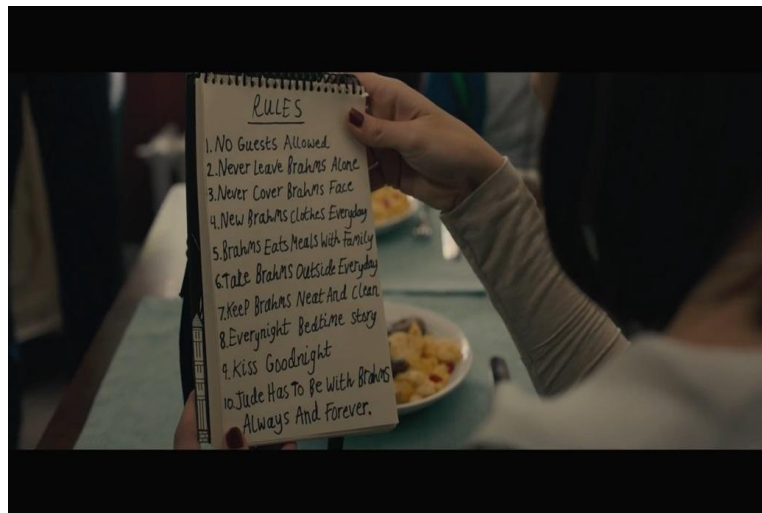 RULES
1. No Guests Allowed
2. Never Leave Brahms Alone
3. Never Cover Brahms Face
4. New Brahms Clothes Everyday
5. Brahms Eats Meals With Family
6. Take Brahms Outside Everyday
7. Keep Brahms Neat And Clean
8. Everynight Bedtime story
9. Kiss Goodnight
10. Jude Has To Be With Brahms
Always And Forever.